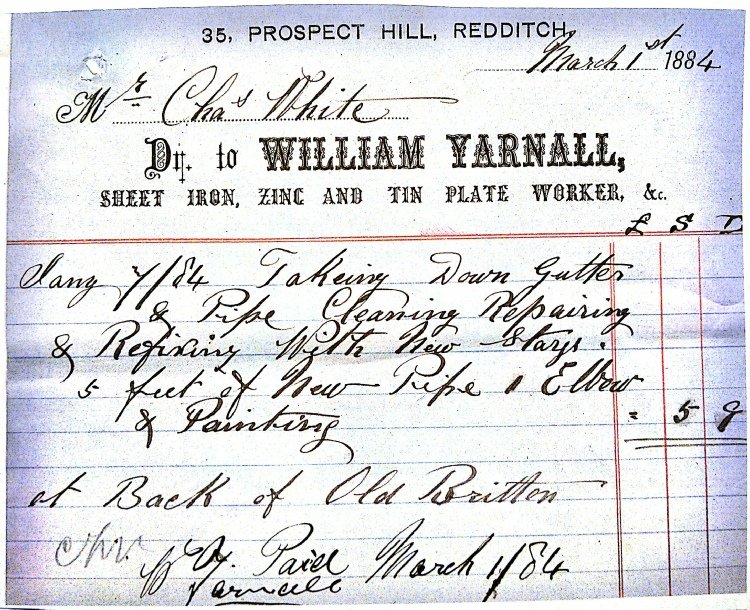 35, PROSPECT HILL, REDDITCH,
March 1st 1884
Mr Chas White
Dr. to WILLIAM YARNALL,
SHEET IRON, ZINC AND TIN PLATE WORKER, &c.
£ S D
Jany 7/84 Takeing Down Gutter
& Pipe Cleaning Repairing
& Refixing With New Stays.
5 feet of New Pipe 1 Elbow
& Painting = 5 9
at Back of Old Britton
Paid March 1/84
Yarnall